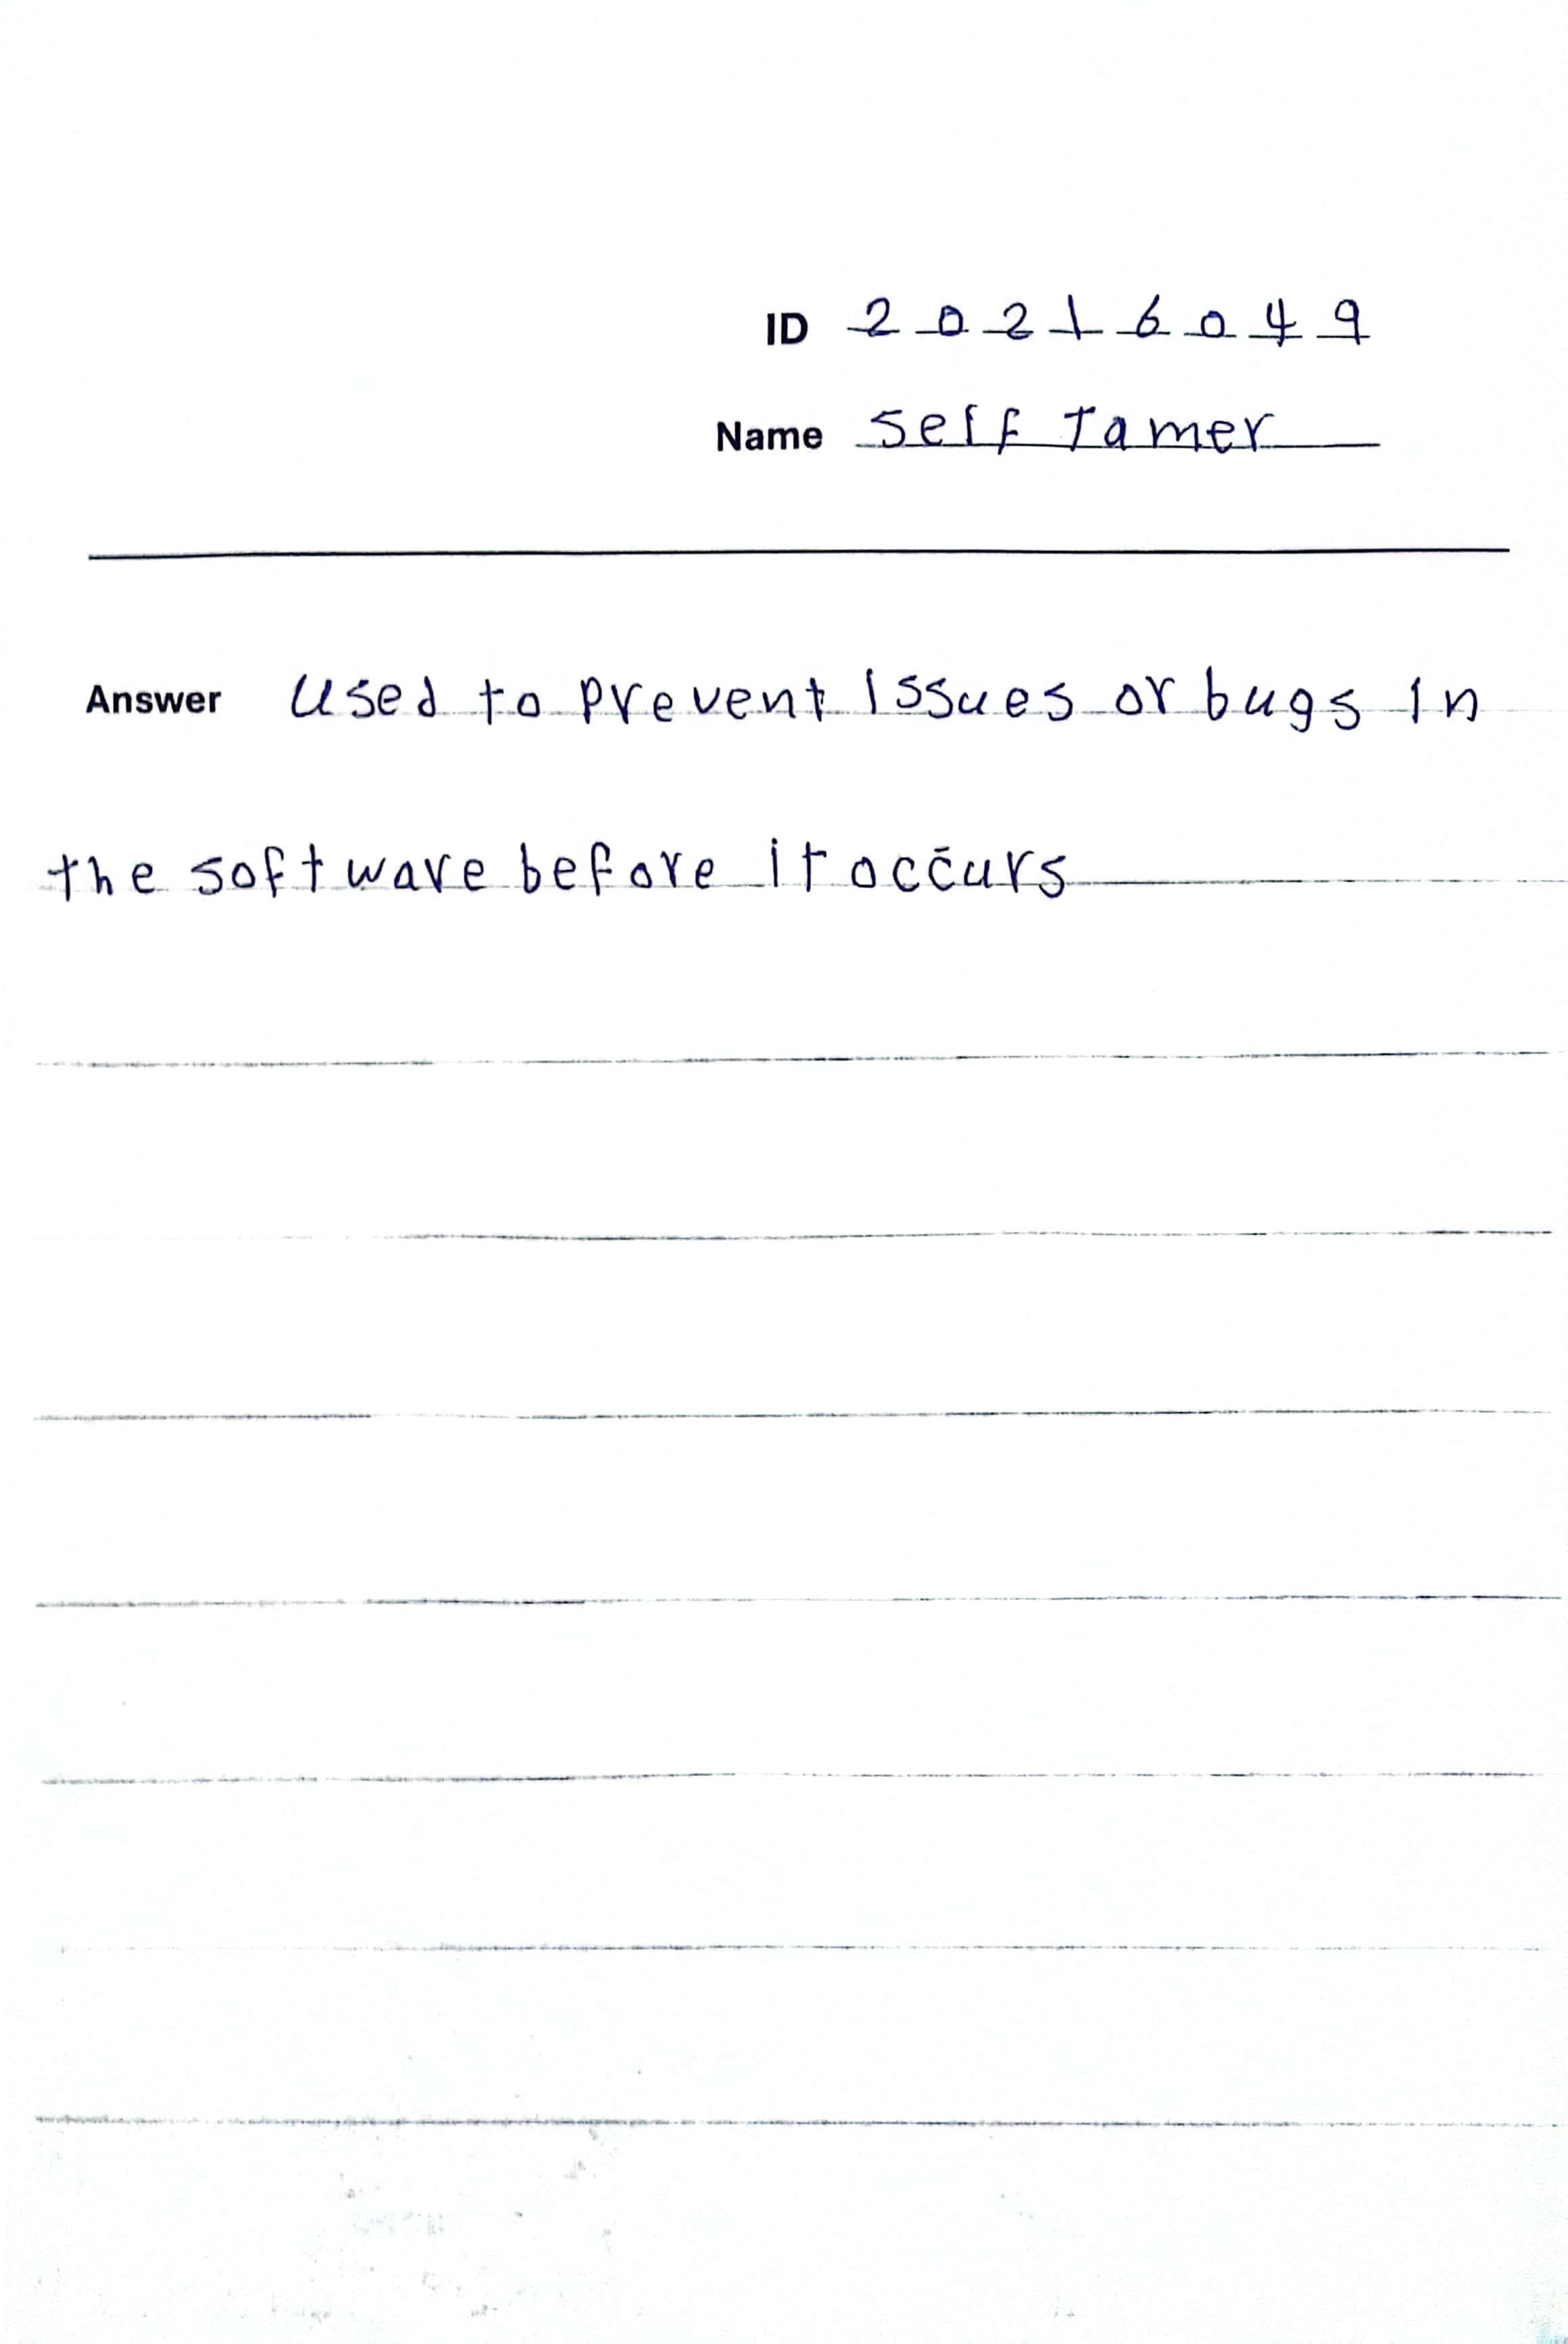 ID 2 0 2 1 6 0 4 9
Name Seif Tamer
Answer Used to prevent issues or bugs in
the software before it occurs